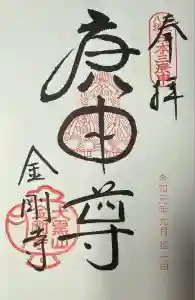 奉拝
令和元年九月拾一日
庚申尊
金剛寺
大黒山